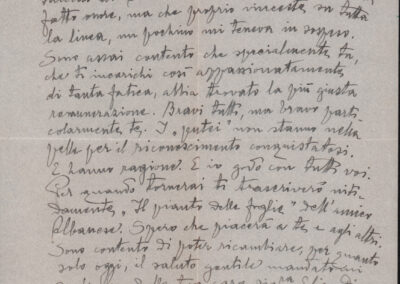 fatto onore, ma che proprio vinceste su tutta
la linea, un pochino mi teneva in sospeso.
Sono assai contento che specialmente tu,
che ti incarichi così appassionatamente
di tanta fatica, abbia trovato la più giusta
remunerazione. Bravi tutti, ma bravo parti-
colarmente te. I „putei" non stanno nella
pelle per il riconoscimento conquistatosi.
E hanno ragione. E io godo con tutti voi.
Per quando tornerai ti trascriverò niti-
damente „Il pianto delle foglie" dell'amico
Albanese. Spero che piacerà a te e agli altri.
Sono contento di poter ricambiare, per quanto
solo oggi, il saluto gentile mandatomi